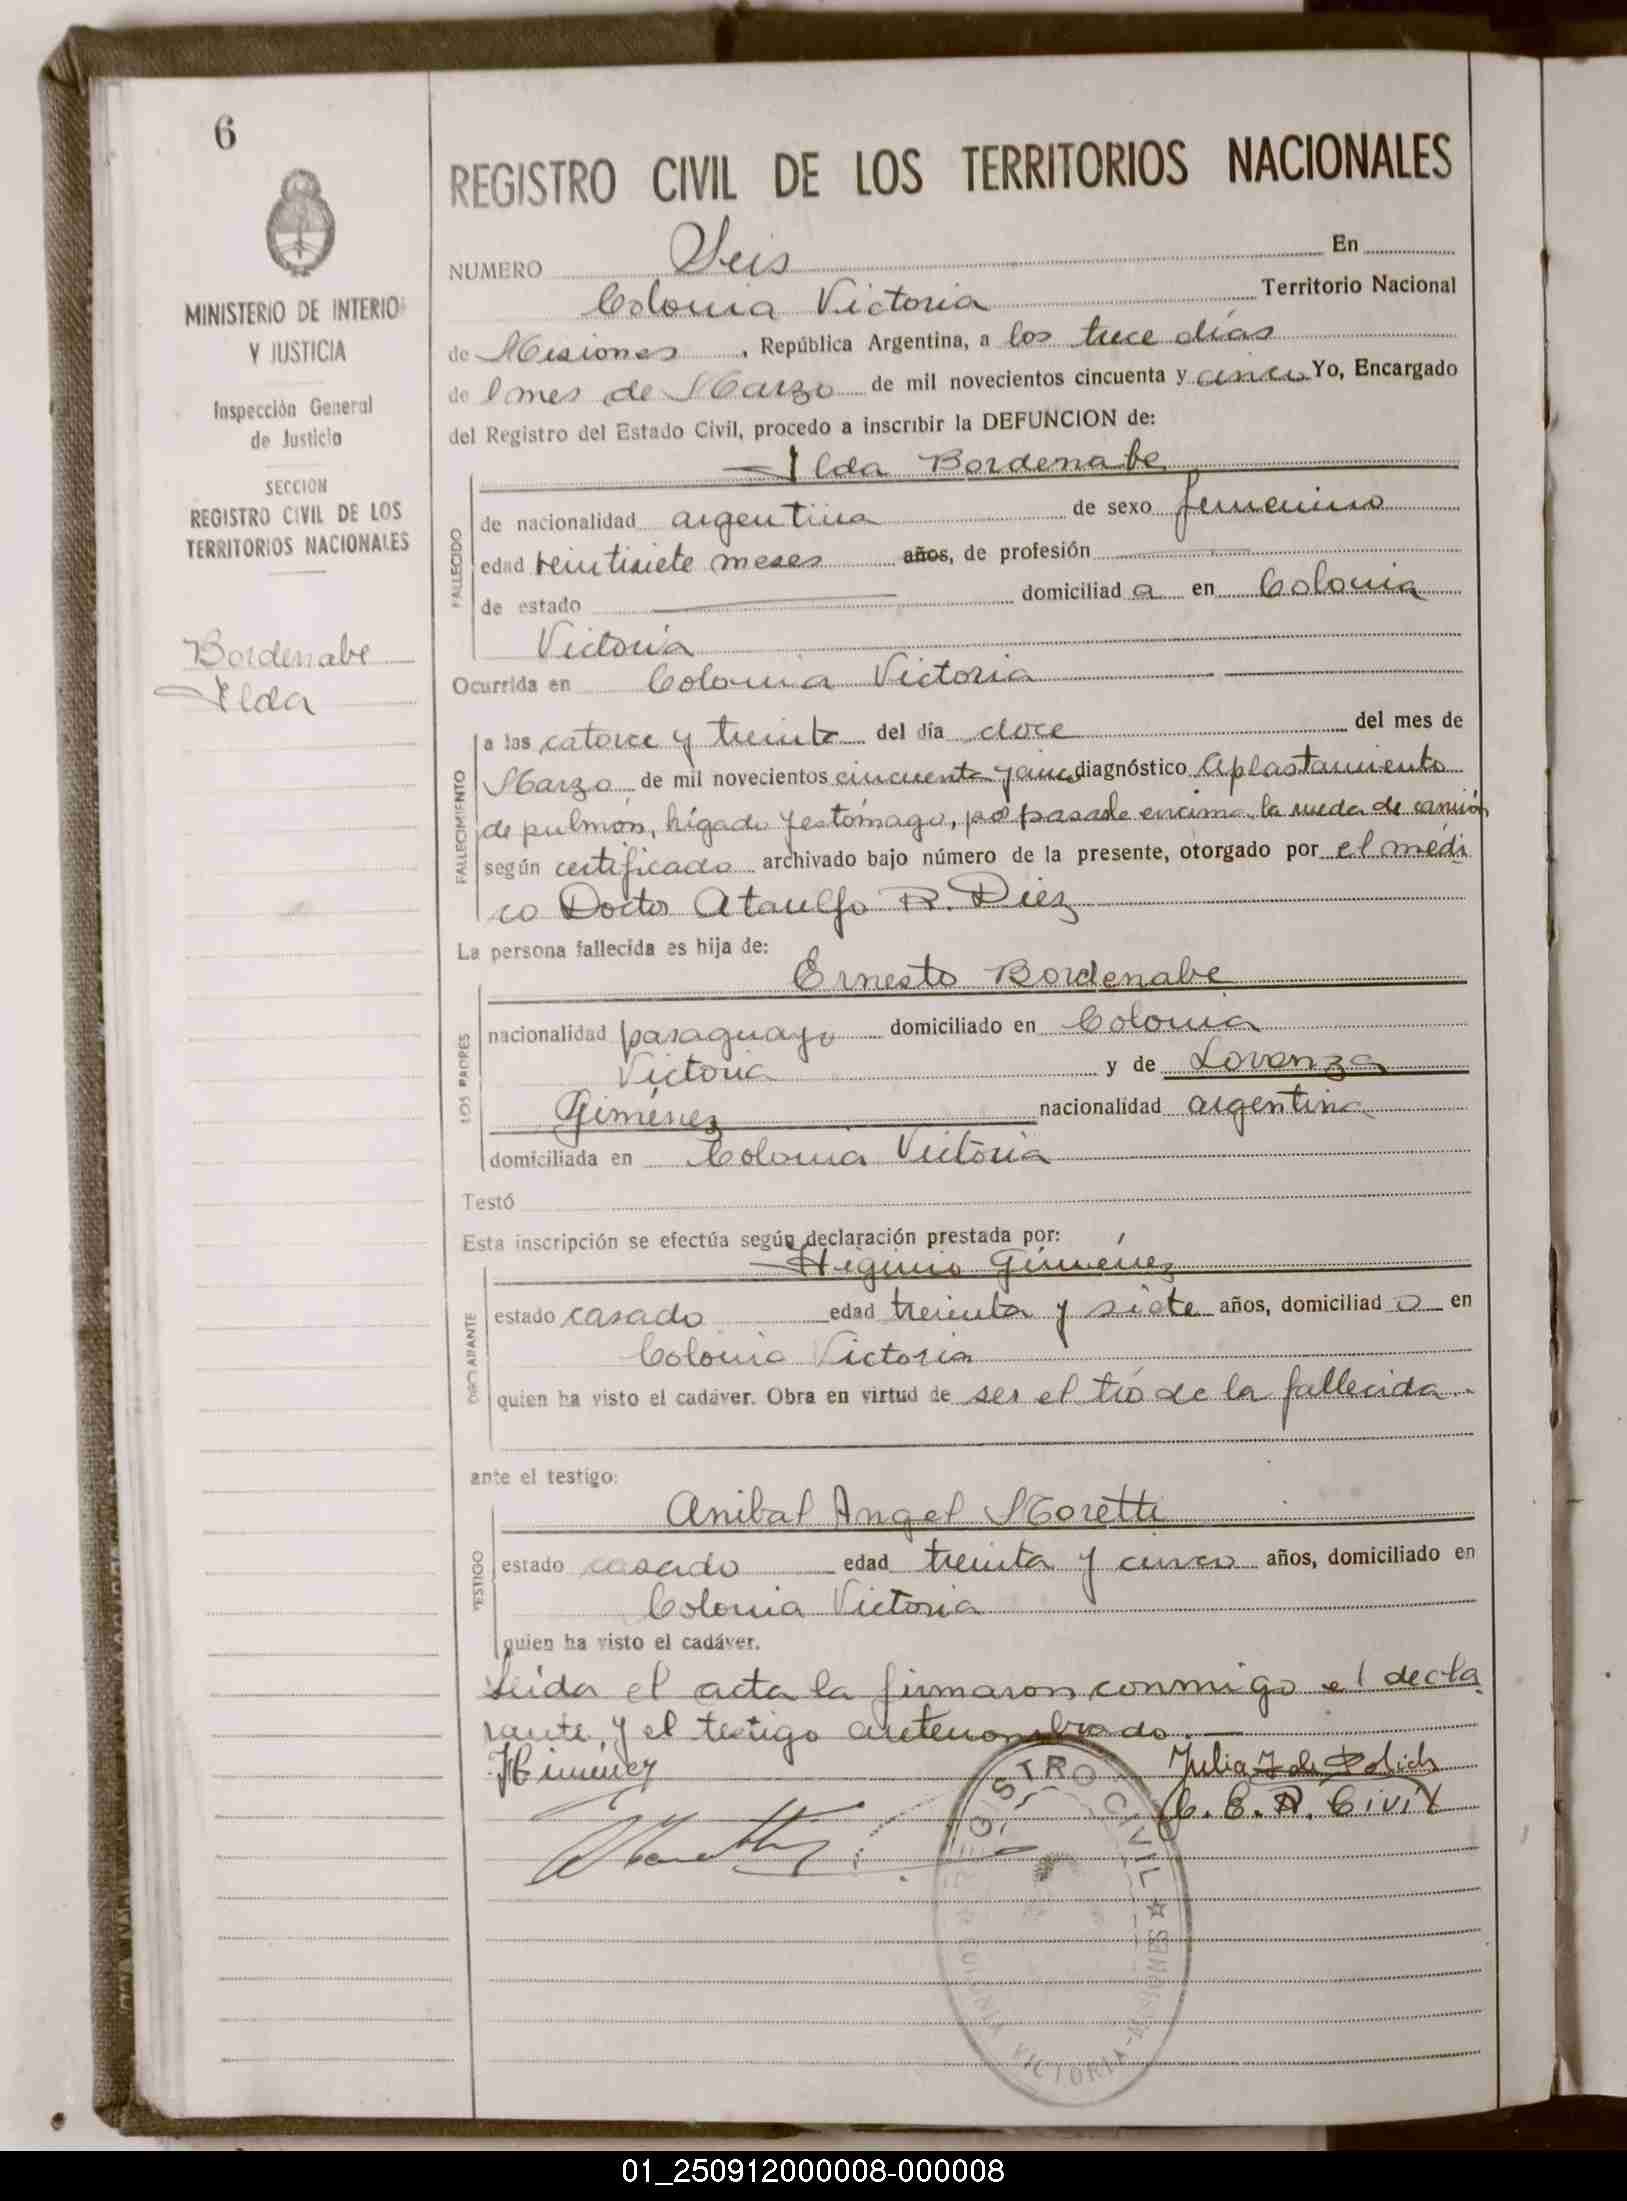 6
MINISTERIO DE INTERIOR
Y JUSTICIA
Inspección General
de Justicia
SECCION
REGISTRO CIVIL DE LOS
TERRITORIOS NACIONALES
Bordenabe
Ilda
REGISTRO CIVIL DE LOS TERRITORIOS NACIONALES
NUMERO Seis En
Colonia Victoria Territorio Nacional
de Misiones, República Argentina, a los trece días
del mes de Marzo de mil novecientos cincuenta y cinco Yo, Encargado
del Registro del Estado Civil, procedo a inscribir la DEFUNCION de:
Ilda Bordenabe
FALLECIDO
de nacionalidad argentina de sexo femenino
edad veintisiete meses años, de profesión
de estado domiciliad a en Colonia
Victoria
Ocurrida en Colonia Victoria
FALLECIMIENTO
a las catorce y treinta del día doce del mes de
Marzo de mil novecientos cincuenta y cinco diagnóstico Aplastamiento
de pulmón, hígado y estómago, por pasarle encima la rueda de camión
según certificado archivado bajo número de la presente, otorgado por el médi
co Doctor Ataulfo R. Diez
La persona fallecida es hija de:
Ernesto Bordenabe
LOS PADRES
nacionalidad paraguayo domiciliado en Colonia
Victoria y de Lorenza
Giménez nacionalidad argentina
domiciliada en Colonia Victoria
Testó
Esta inscripción se efectúa según declaración prestada por:
Higinio Giménez
DECLARANTE
estado casado edad treinta y siete años, domiciliad o en
Colonia Victoria
quien ha visto el cadáver. Obra en virtud de ser el tío de la fallecida
ante el testigo:
Anibal Angel Moretti
TESTIGO
estado casado edad treinta y cinco años, domiciliado en
Colonia Victoria
quien ha visto el cadáver.
Leída el acta la firmaron conmigo el decla
rante, y el testigo antenombrado.
HGimenez
Julia Z de Polich
C. E. R. Civil
REGISTRO CIVIL ☆ MISIONES
VICTORIA
01_250912000008-000008